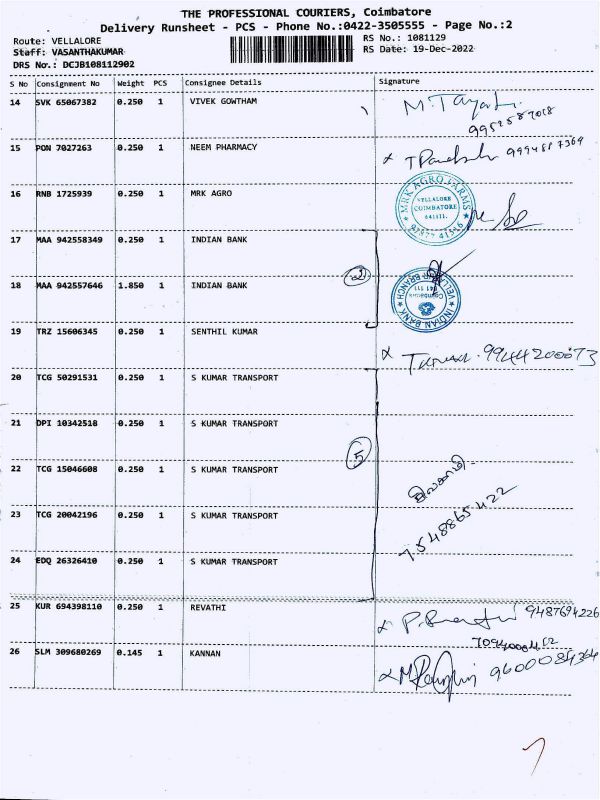 THE PROFESSIONAL COURIERS, Coimbatore
Delivery Runsheet - PCS - Phone No.:0422-3505555 - Page No.:2
Route: VELLALORE RS No.: 1081129
Staff: VASANTHAKUMAR RS Date: 19-Dec-2022
DRS No.: DCJB108112902
S No Consignment No Weight PCS Consignee Details Signature
14 SVK 65067382 0.250 1 VIVEK GOWTHAM
15 PON 7027263 0.250 1 NEEM PHARMACY
16 RNB 1725939 0.250 1 MRK AGRO
MRK AGRO FARMS
VELLALORE
COIMBATORE
641111.
17 MAA 942558349 0.250 1 INDIAN BANK
2
18 MAA 942557646 1.850 1 INDIAN BANK
INDIAN BANK
Coimbatore
641 111
19 TRZ 15606345 0.250 1 SENTHIL KUMAR
9944200073
20 TCG 50291531 0.250 1 S KUMAR TRANSPORT
21 DPI 10342518 0.250 1 S KUMAR TRANSPORT
5
22 TCG 15046608 0.250 1 S KUMAR TRANSPORT
23 TCG 20042196 0.250 1 S KUMAR TRANSPORT
7548865422
24 EDQ 26326410 0.250 1 S KUMAR TRANSPORT
25 KUR 694398110 0.250 1 REVATHI
9487694226
26 SLM 309680269 0.145 1 KANNAN
9600084364